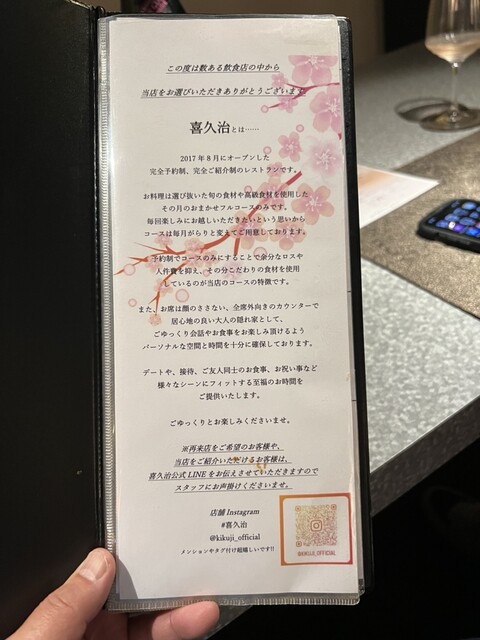 この度は数ある飲食店の中から
当店をお選びいただきありがとうございます
喜久治とは……
2017年8月にオープンした
完全予約制、完全ご紹介制のレストランです。
お料理は選び抜いた旬の食材や高級食材を使用した
その月のおまかせフルコースのみです。
毎回楽しみにお越しいただきたいという思いから
コースは毎月がらりと変えてご用意しております。
予約制でコースのみにすることで余分なロスや
人件費を抑え、その分こだわりの食材を使用
しているのが当店のコースの特徴です。
また、お席は顔のささない、全席外向きのカウンターで
居心地の良い大人の隠れ家として、
ごゆっくり会話やお食事をお楽しみ頂けるよう
パーソナルな空間と時間を十分に確保しております。
デートや、接待、ご友人同士のお食事、お祝い事など
様々なシーンにフィットする至福のお時間を
ご提供いたします。
ごゆっくりとお楽しみくださいませ。
※再来店をご希望のお客様や、
当店をご紹介いただけるお客様は、
喜久治公式LINEをお伝えさせていただきますので
スタッフにお声掛けくださいませ。
店舗 Instagram
#喜久治
@kikuji_official
メンションやタグ付け超嬉しいです!!
@KIKUJI_OFFICIAL